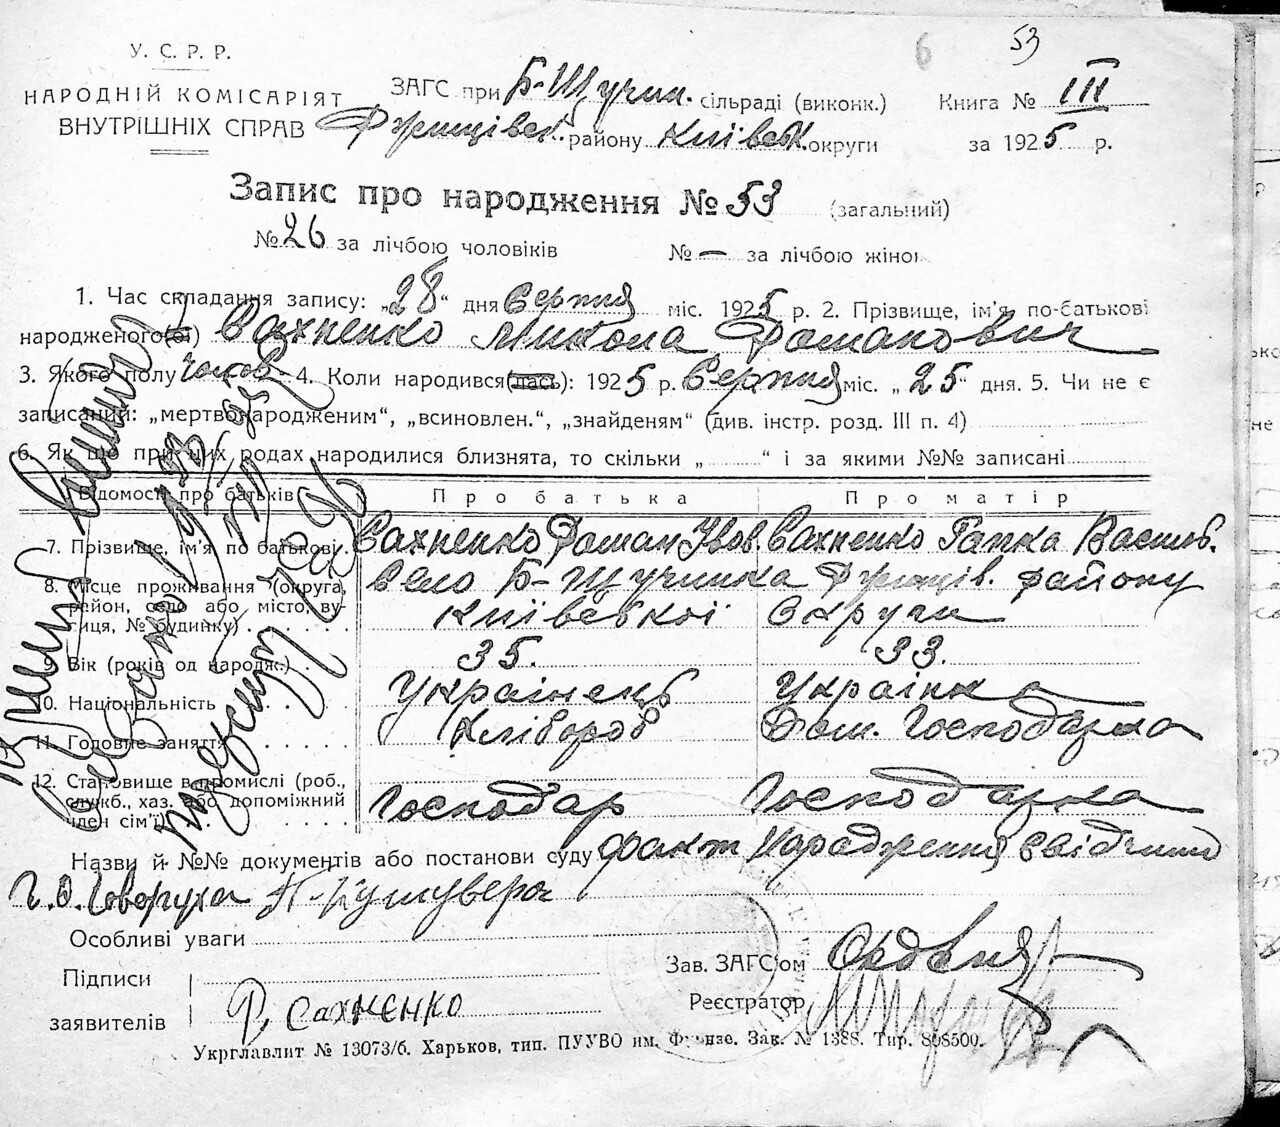 53
6
У. С. Р. Р.
НАРОДНІЙ КОМІСАРІЯТ
ВНУТРІШНІХ СПРАВ
ЗАГС при Б-Щучин. сільраді (виконк.)
района Київськ. округи
Книга № III
за 1925 р.
Запис про народження № 53 (загальний)
№ 26 за лічбою чоловіків № — за лічбою жіно
1. Час складання запису: „28“ дня Серпня міс. 1925 р. 2. Прізвище, ім'я по-батькові
народженого(ої) Сахненко Микола Романович
3. Якого полу чолов. 4. Коли народився(лась): 1925 р. Серпня міс. „25“ дня. 5. Чи не є
записаний: „мертвонародженим“, „всиновлен.“, „знайденям“ (див. інстр. розд. III п. 4)
6. Як що при цих родах народилися близнята, то скільки „ “ і за якими №№ записані
Відомості про батьків Про батька Про матір
7. Прізвище, ім'я по батькові. Сахненко Роман Сахненко Гапка Василь.
8. Місце проживання (округа, район, село або місто, вулиця, № будинку) Село Б-Щучинка району
Київської Округи
9. Вік (років од народж.) 35. 33.
10. Національність Українець Українка
11. Головне заняття Хлібороб Дом. Господарка
12. Становище в промислі (роб., служб., хаз. або допоміжний член сім'ї) Господар Господарка
Назви й №№ документів або постанови суду факт народження свідчили
Говоруха
Особливі уваги
Підписи
заявителів Р. Сахненко
Зав. ЗАГС'ом
Реєстратор
Укрглавліт № 13073/6. Харьков, тип. ПУУВО им. Фрунзе. Зак. № 1388. Тир. 808500.